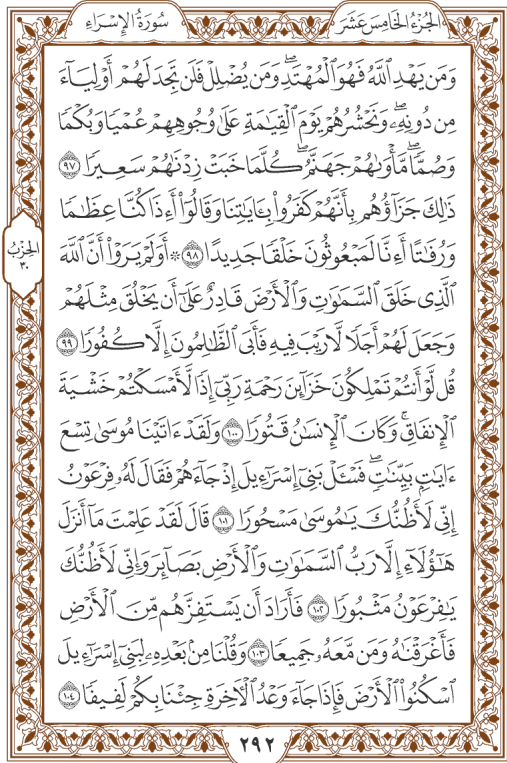 الجُزْءُ الخَامِسَ عَشَرَ
سُورَةُ الإِسْرَاءِ
وَمَن يَهْدِ ٱللَّهُ فَهُوَ ٱلْمُهْتَدِۖ وَمَن يُضْلِلْ فَلَن تَجِدَ لَهُمْ أَوْلِيَآءَ
مِن دُونِهِۦۖ وَنَحْشُرُهُمْ يَوْمَ ٱلْقِيَٰمَةِ عَلَىٰ وُجُوهِهِمْ عُمْيًا وَبُكْمًا
وَصُمًّاۖ مَّأْوَىٰهُمْ جَهَنَّمُۖ كُلَّمَا خَبَتْ زِدْنَٰهُمْ سَعِيرًا ٩٧
ذَٰلِكَ جَزَآؤُهُم بِأَنَّهُمْ كَفَرُوا۟ بِـَٔايَٰتِنَا وَقَالُوٓا۟ أَءِذَا كُنَّا عِظَٰمًا
وَرُفَٰتًا أَءِنَّا لَمَبْعُوثُونَ خَلْقًا جَدِيدًا ٩٨ ۞ أَوَلَمْ يَرَوْا۟ أَنَّ ٱللَّهَ
ٱلَّذِى خَلَقَ ٱلسَّمَٰوَٰتِ وَٱلْأَرْضَ قَادِرٌ عَلَىٰٓ أَن يَخْلُقَ مِثْلَهُمْ
وَجَعَلَ لَهُمْ أَجَلًا لَّا رَيْبَ فِيهِ فَأَبَى ٱلظَّٰلِمُونَ إِلَّا كُفُورًا ٩٩
قُل لَّوْ أَنتُمْ تَمْلِكُونَ خَزَآئِنَ رَحْمَةِ رَبِّىٓ إِذًا لَّأَمْسَكْتُمْ خَشْيَةَ
ٱلْإِنفَاقِۚ وَكَانَ ٱلْإِنسَٰنُ قَتُورًا ١٠٠ وَلَقَدْ ءَاتَيْنَا مُوسَىٰ تِسْعَ
ءَايَٰتٍۭ بَيِّنَٰتٍۖ فَسْـَٔلْ بَنِىٓ إِسْرَٰٓءِيلَ إِذْ جَآءَهُمْ فَقَالَ لَهُۥ فِرْعَوْنُ
إِنِّى لَأَظُنُّكَ يَٰمُوسَىٰ مَسْحُورًا ١٠١ قَالَ لَقَدْ عَلِمْتَ مَآ أَنزَلَ
هَٰٓؤُلَآءِ إِلَّا رَبُّ ٱلسَّمَٰوَٰتِ وَٱلْأَرْضِ بَصَآئِرَ وَإِنِّى لَأَظُنُّكَ
يَٰفِرْعَوْنُ مَثْبُورًا ١٠٢ فَأَرَادَ أَن يَسْتَفِزَّهُم مِّنَ ٱلْأَرْضِ
فَأَغْرَقْنَٰهُ وَمَن مَّعَهُۥ جَمِيعًا ١٠٣ وَقُلْنَا مِنۢ بَعْدِهِۦ لِبَنِىٓ إِسْرَٰٓءِيلَ
ٱسْكُنُوا۟ ٱلْأَرْضَ فَإِذَا جَآءَ وَعْدُ ٱلْءَاخِرَةِ جِئْنَا بِكُمْ لَفِيفًا ١٠٤
الحِزْبُ
٣٠
٢٩٢